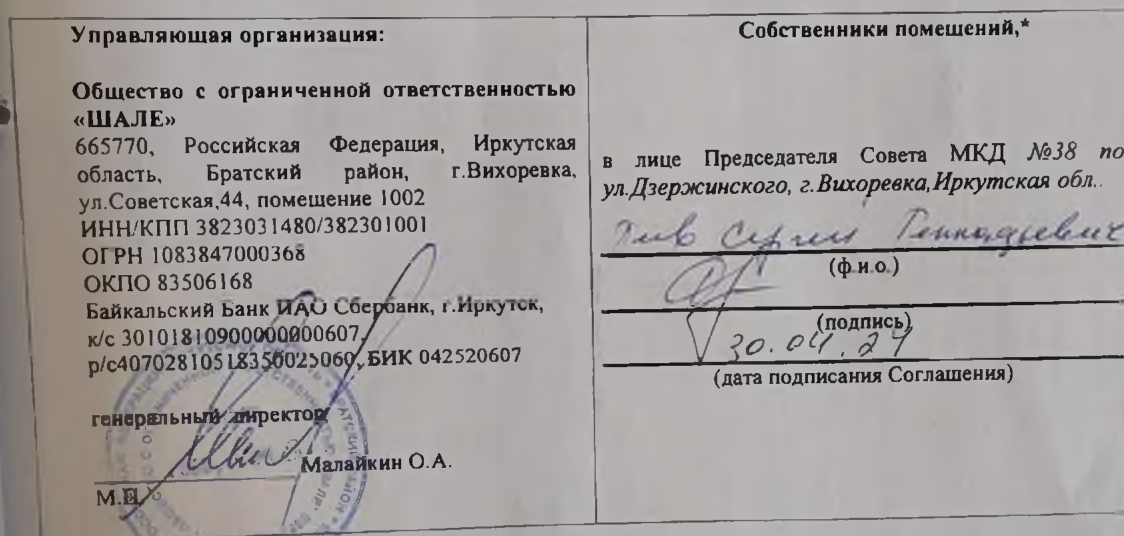 Управляющая организация:
Общество с ограниченной ответственностью
«ШАЛЕ»
665770, Российская Федерация, Иркутская
область, Братский район, г.Вихоревка,
ул.Советская,44, помещение 1002
ИНН/КПП 3823031480/382301001
ОГРН 1083847000368
ОКПО 83506168
Байкальский Банк ПАО Сбербанк, г.Иркутск,
к/с 30101810900000000607,
р/с40702810518350025060, БИК 042520607
генеральный директор
Малайкин О.А.
М.П.
Собственники помещений,*
в лице Председателя Совета МКД №38 по
ул.Дзержинского, г.Вихоревка,Иркутская обл..
Сергей Геннадьевич
(ф.и.о.)
(подпись)
30.04.24
(дата подписания Соглашения)